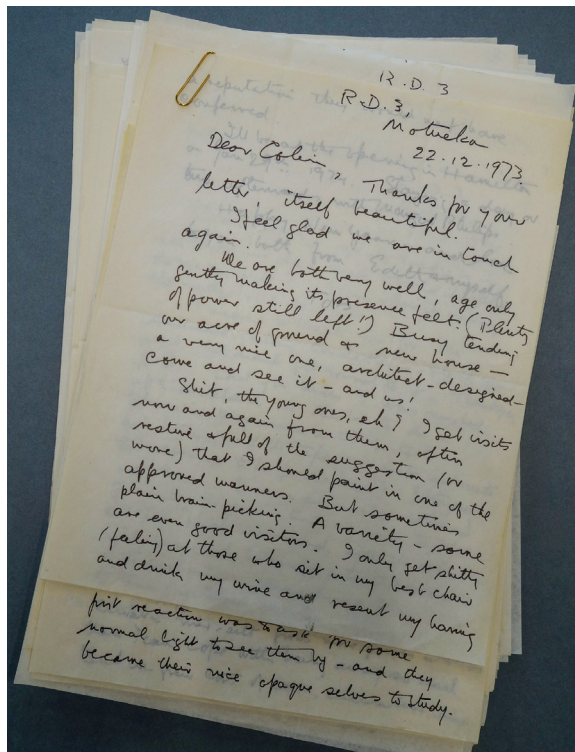 R.D. 3
R.D. 3,
Motueka
22.12.1973
Dear Colin, Thanks for your
letter, itself beautiful.
I feel glad we are in touch
again.
We are both very well, age only
gently making its presence felt. (Plenty
of power still left!) Busy tending
our acre of ground & new house —
a very nice one, architect-designed —
come and see it – and us!
Shit, the young ones, eh? I get visits
now and again from them, often
restive & full of the suggestion (or
worse) that I should paint in one of the
approved manners. But sometimes
plain brain picking. A variety – some
are even good visitors. I only get shitty
(feeling) at those who sit in my best chair
and drink my wine and resent my having
first reaction was to ask for some
normal light to see them by – and they
became their nice opaque selves to study.